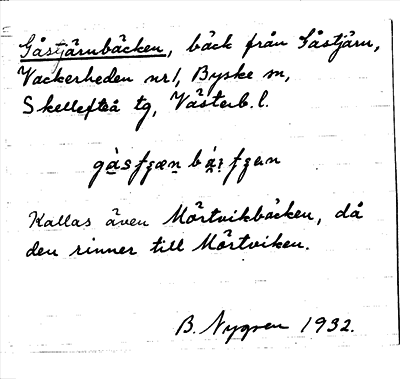 Gåstjärnbäcken, bäck från Gåstjärn,
Vackerheden nr1, Byske sn,
Skellefteå tg, Västerb. l.
Kallas även Mörtvikbäcken, då
den rinner till Mörtviken.
B. Nygren 1932.